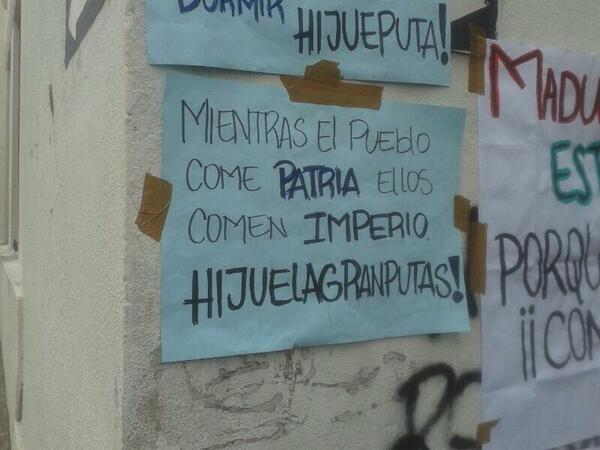 DORMIR
HIJUEPUTA!
MIENTRAS El PUEblO
COME PATRIA EllOS
COMEN IMPERIO.
HIJUELAGRANPUTAS!
MADU
EST
PORQU
¡¡CON